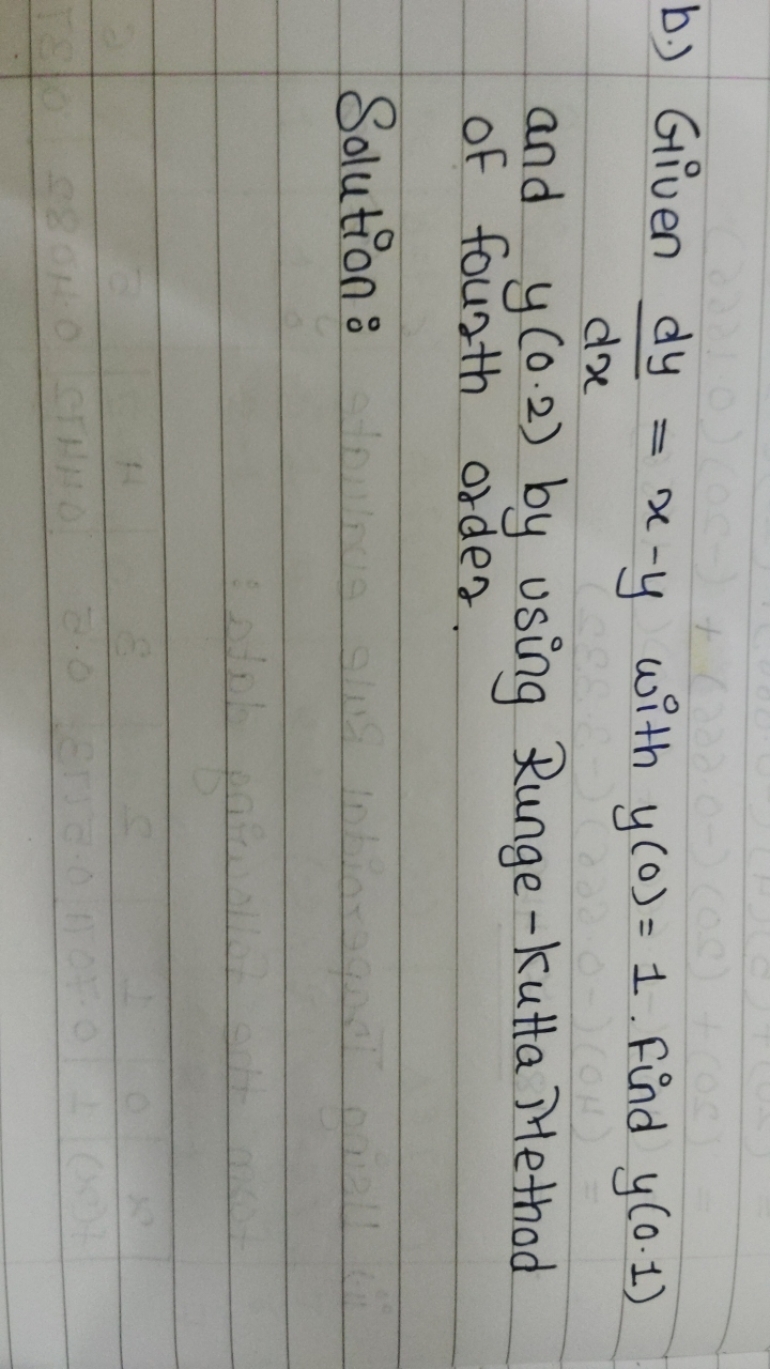 b.) Given dy = x-y with y(0)= 1. Find y(0.1)
dx
and y(0.2) by using Runge-Kutta Method
of fourth order.
Solution: